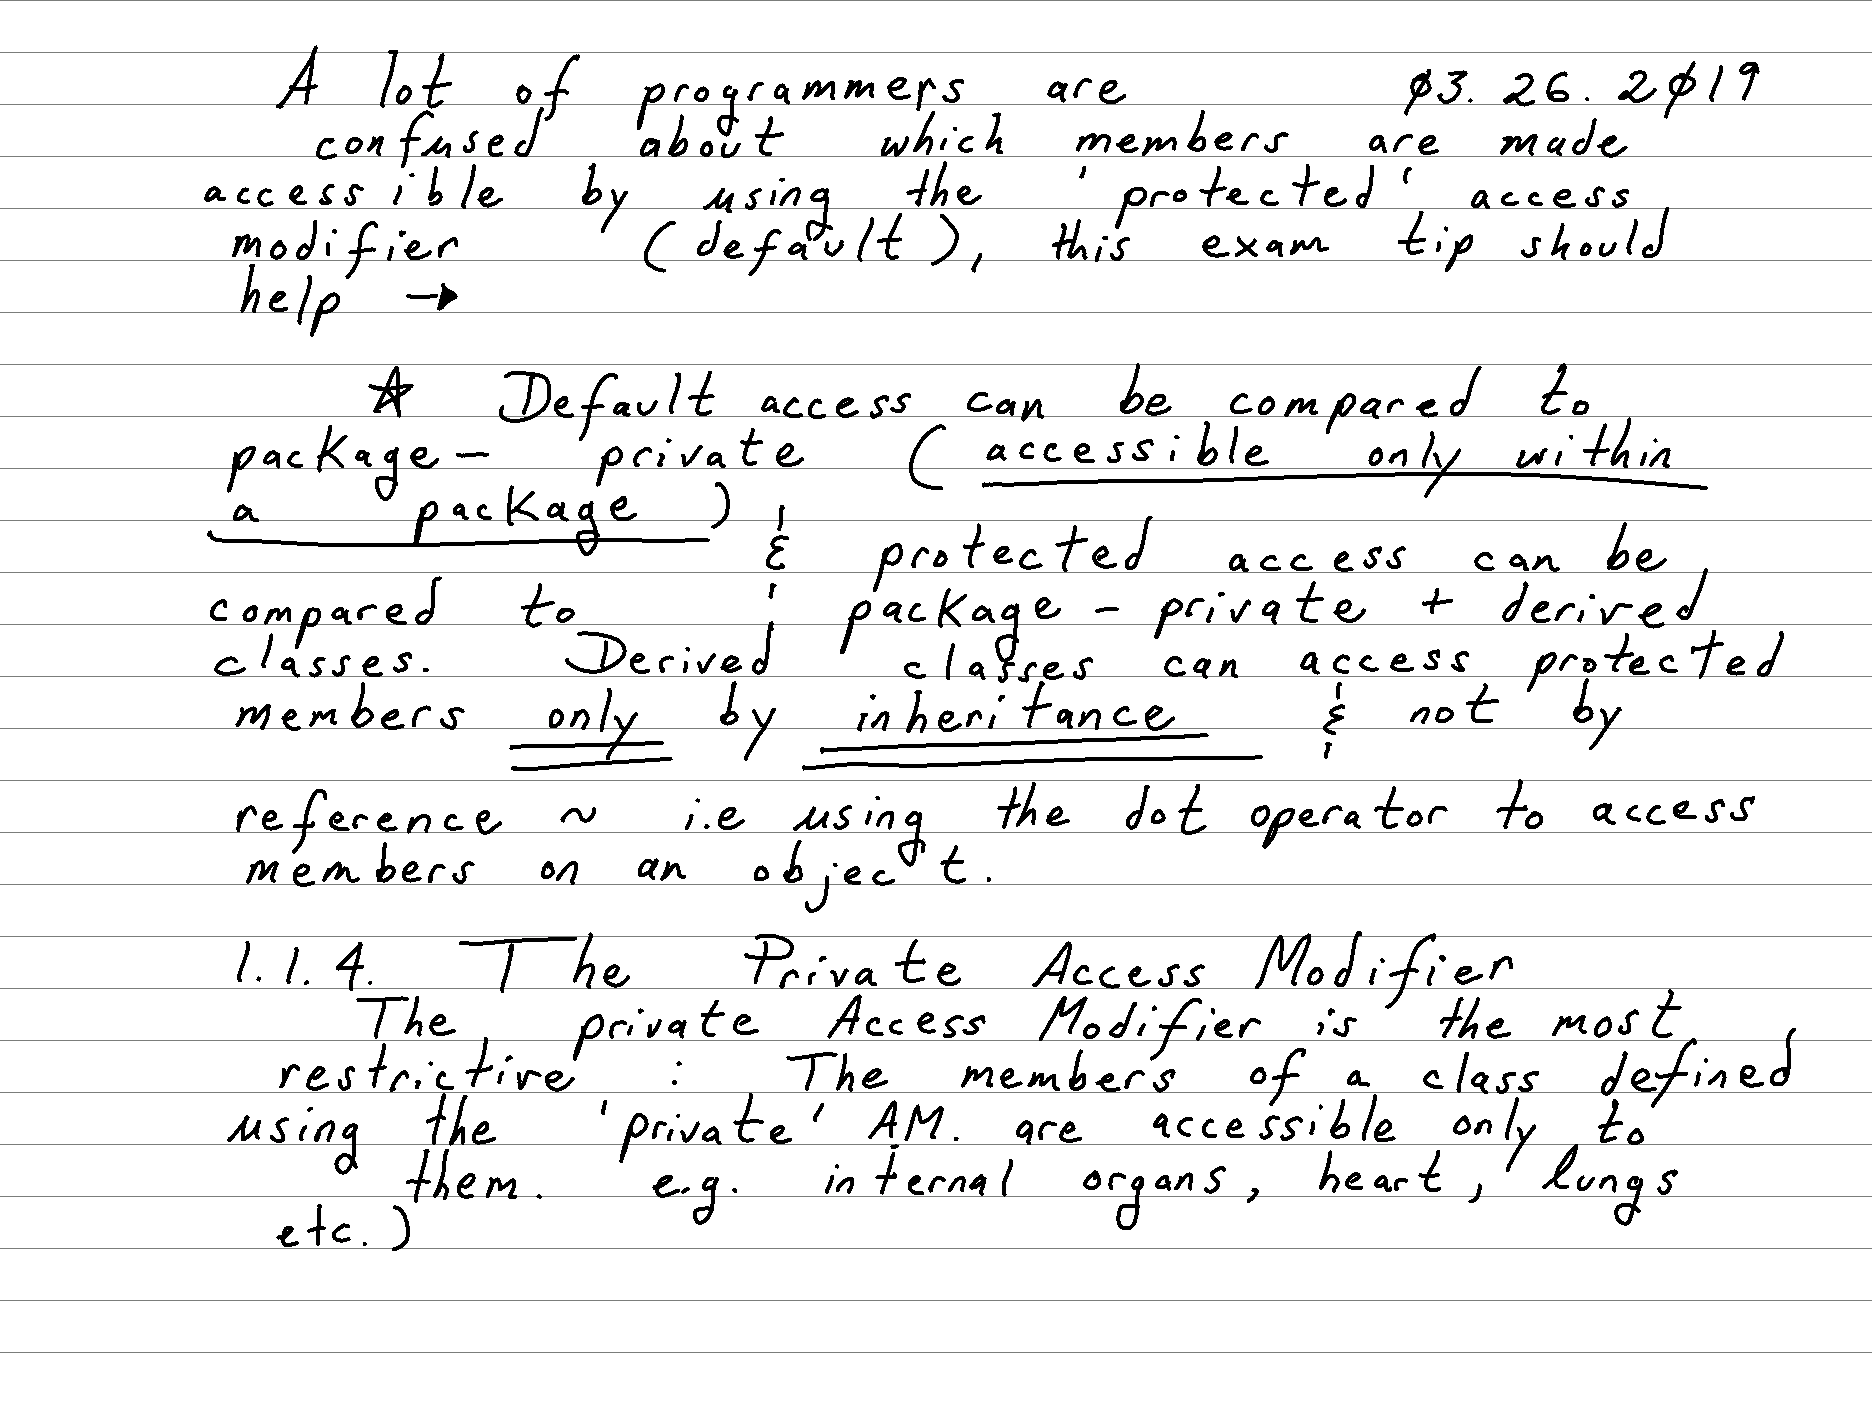 A lot of programmers are 03.26.2019
confused about which members are made
accessible by using the 'protected' access
modifier (default), this exam tip should
help →
☆ Default access can be compared to
package- private (accessible only within
a package) & protected access can be
compared to package - private + derived
classes. Derived classes can access protected
members only by inheritance & not by
reference ~ i.e using the dot operator to access
members on an object.
1.1.4. The Private Access Modifier
The private Access Modifier is the most
restrictive : The members of a class defined
using the 'private' AM. are accessible only to
them. e.g. internal organs, heart, lungs
etc.)